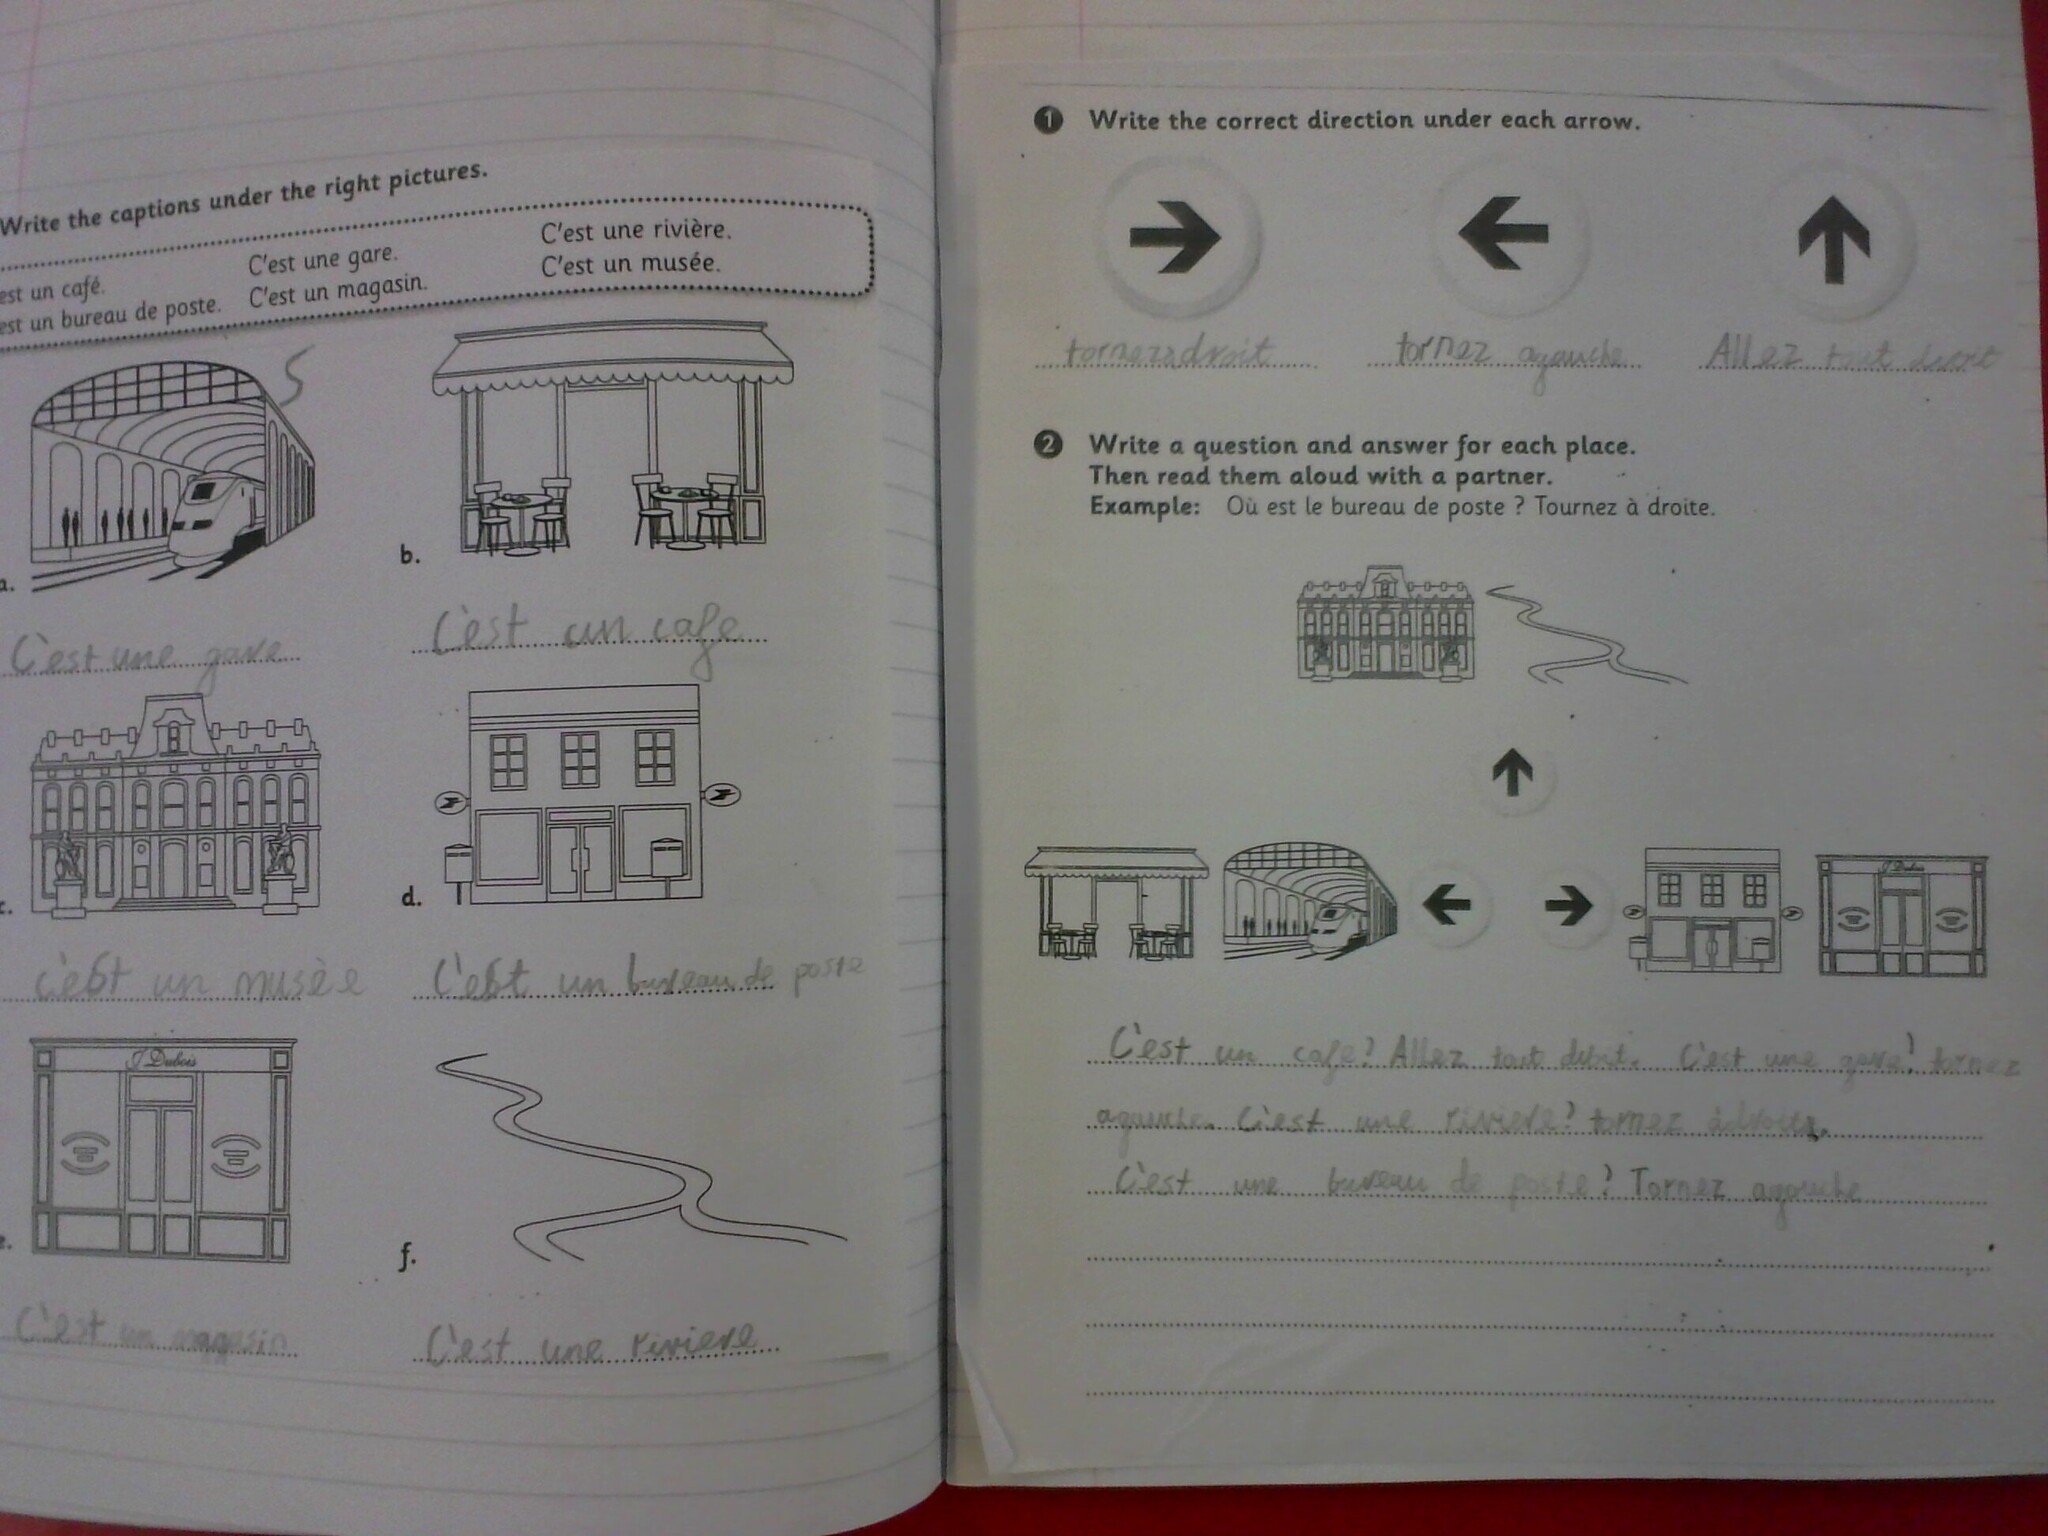 Write the captions under the right pictures.
est un café. C'est une gare. C'est une rivière.
est un bureau de poste. C'est un magasin. C'est un musée.
a.
b.
C'est une gare
C'est un cafe
c.
d.
c'est un musèe
C'est un bureau de poste
J Dubois
e.
f.
C'est un magasin
C'est une riviere
1 Write the correct direction under each arrow.
tornezàdroit tornez agauche Allez tout droit
2 Write a question and answer for each place.
Then read them aloud with a partner.
Example: Où est le bureau de poste ? Tournez à droite.
J Dubois
C'est un cafe? Allez tout droit. C'est une gare? tornez
agauche. C'est une riviere? tornez àdroite.
C'est une bureau de poste? Tornez agauche